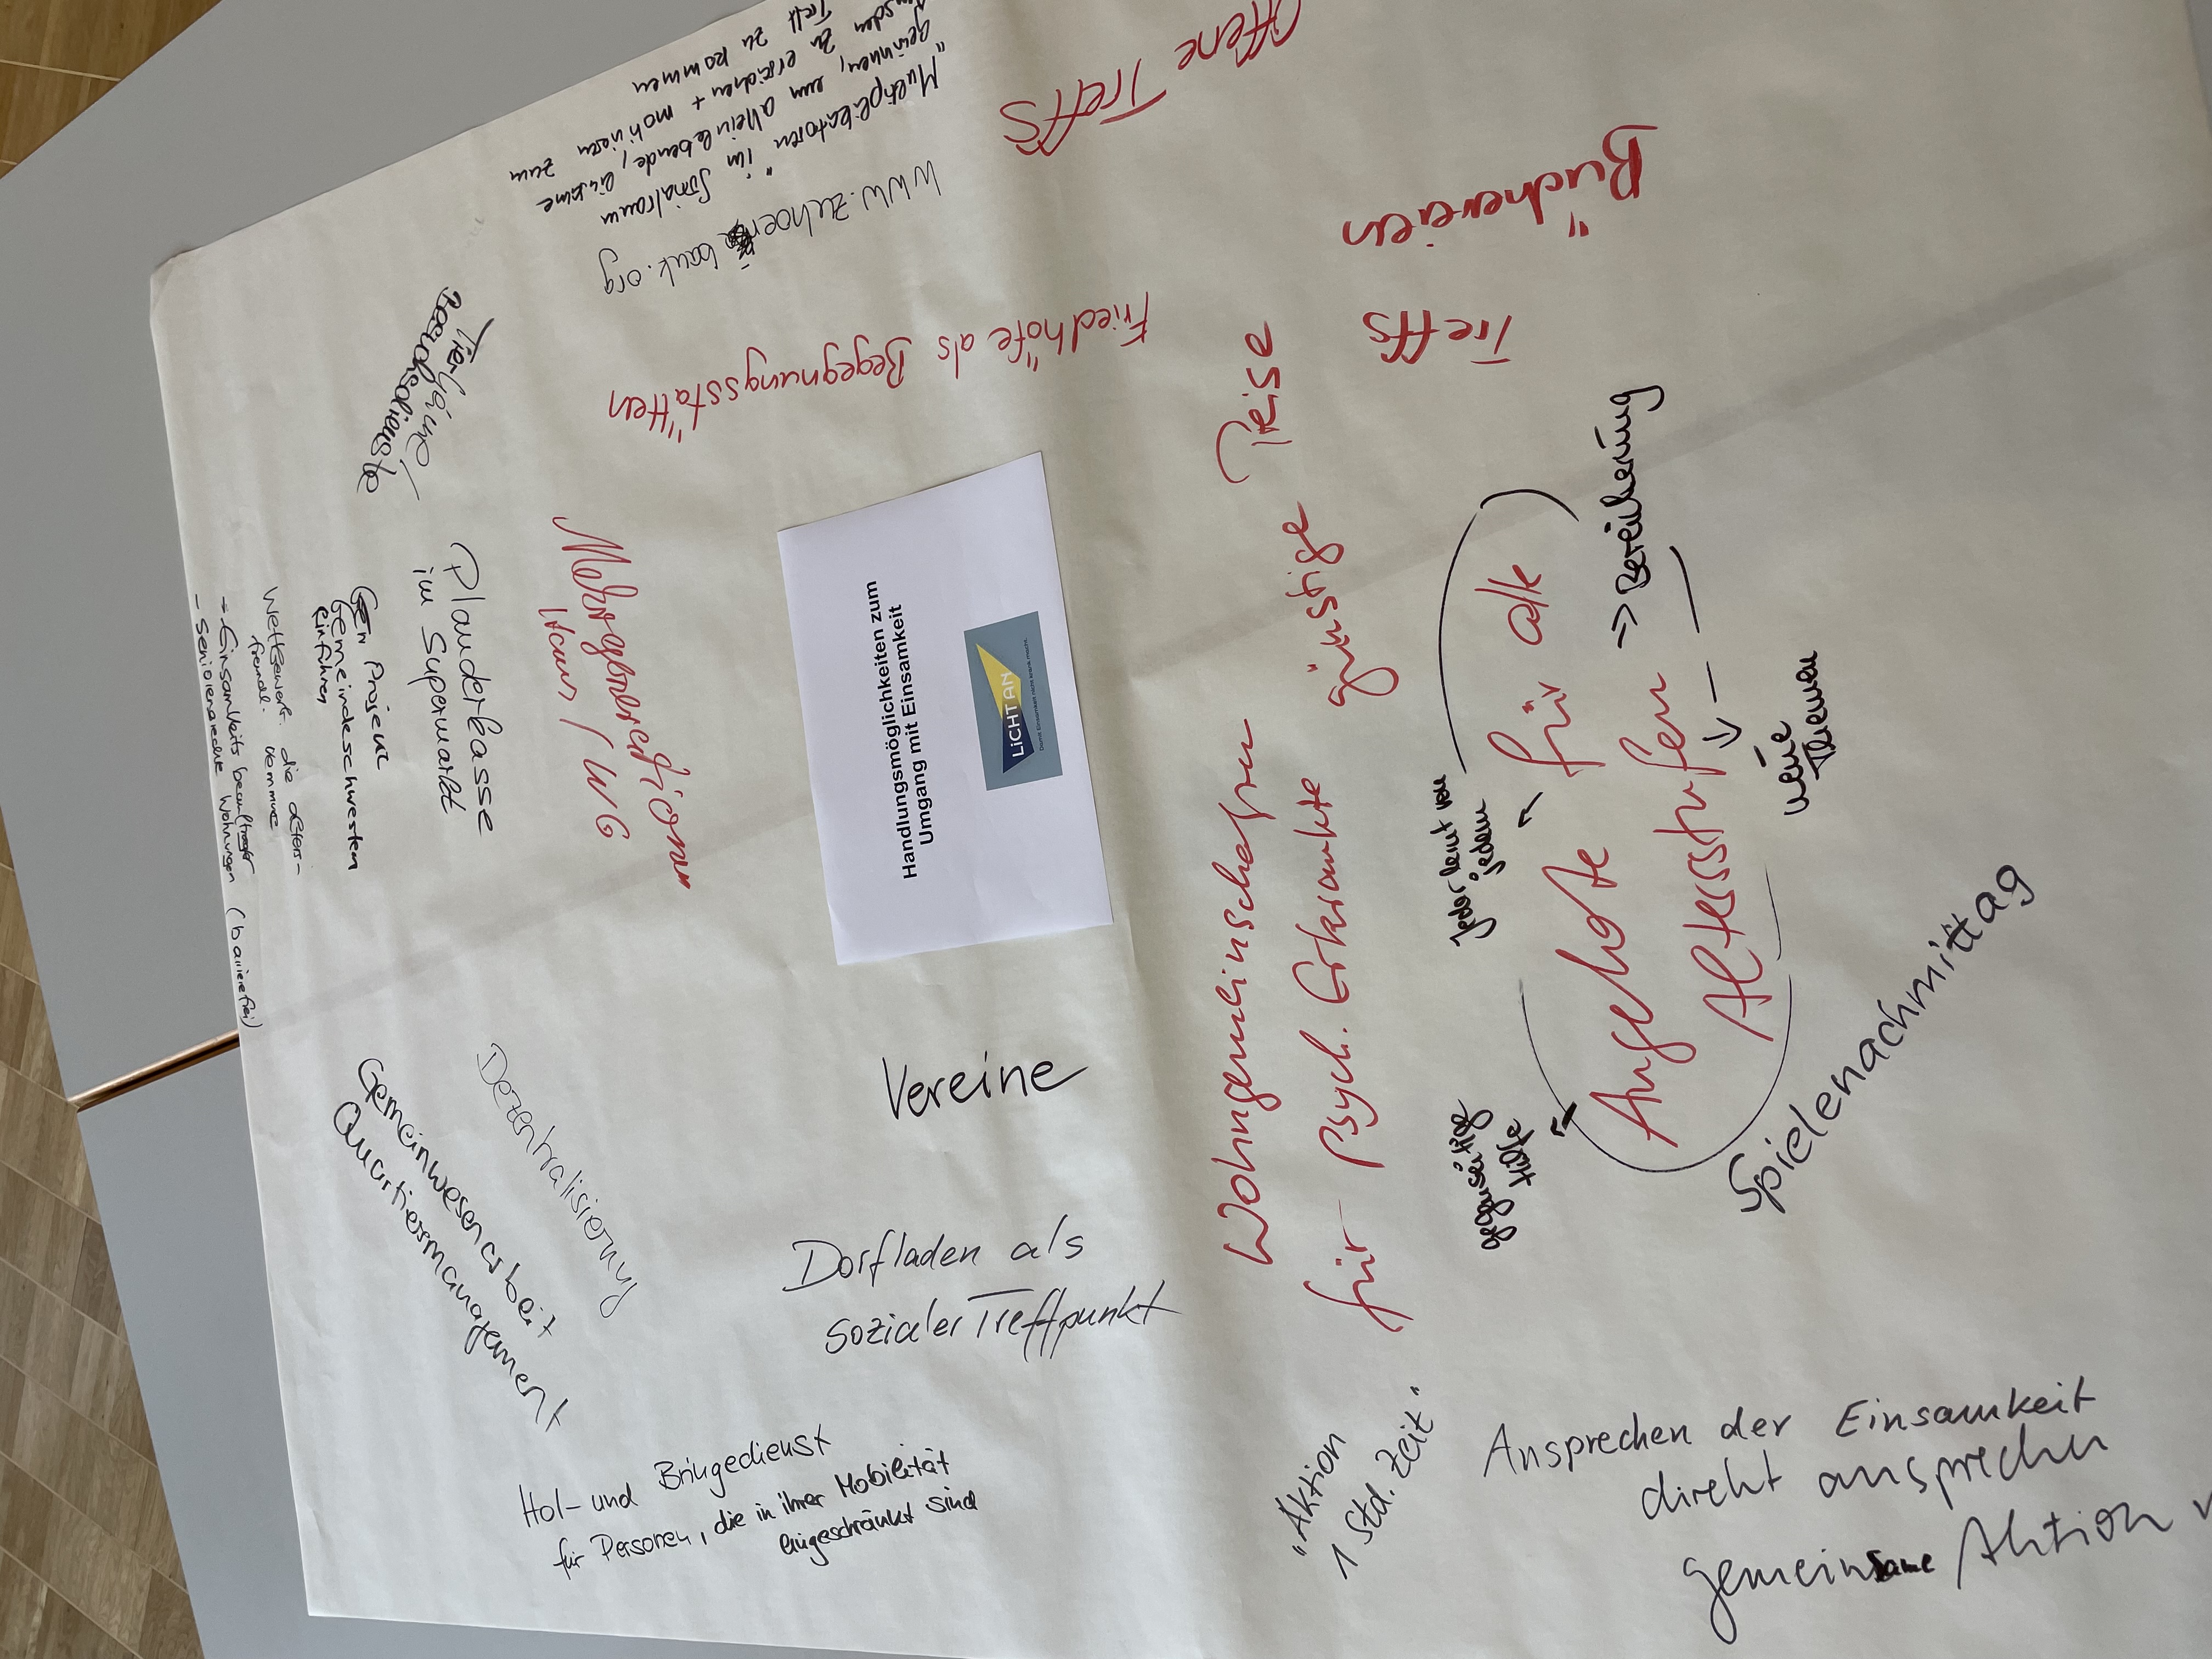 Handlungsmöglichkeiten zum
Umgang mit Einsamkeit
LiCHT AN
Damit Einsamkeit nicht krank macht.
Offene Treffs
Büchereien
Treffs
"Multiplikatoren" im Sozialraum
gewinnen, um alleinlebende, einsame
zu erreichen + motivieren zum
Treff zu kommen
www.zuhoer bank.org
Friedhöfe als Begegnungsstätten
Tier
Besuchsdienste
Plauderkasse
im Supermarkt
Mehrgenerationen
Haus / WG
Projekt
Gemeindeschwester
einführen
Wettbewerb die alters-
freundl. Kommune
→ Einsamkeitsbeauftragter
- Seniorenrechte Wohnungen (barrierefrei)
Gemeinwesenarbeit
Quartiersmanagement
Dezentralisierung
Vereine
Dorfladen als
sozialer Treffpunkt
Hol- und Bringedienst
für Personen, die in ihrer Mobilität
eingeschränkt sind
Wohngemeinschaften
für Psych. Erkrankte
günstige Preise
Angebote für alle
Altersstufen
→ Bereicherung
Jeder lernt von
jedem
gegenseitige
Hilfe
neue
Themen
Spielenachmittag
"Aktion
1 Std. Zeit"
Ansprechen der Einsamkeit
direkt ansprechen
gemeinsame Aktion